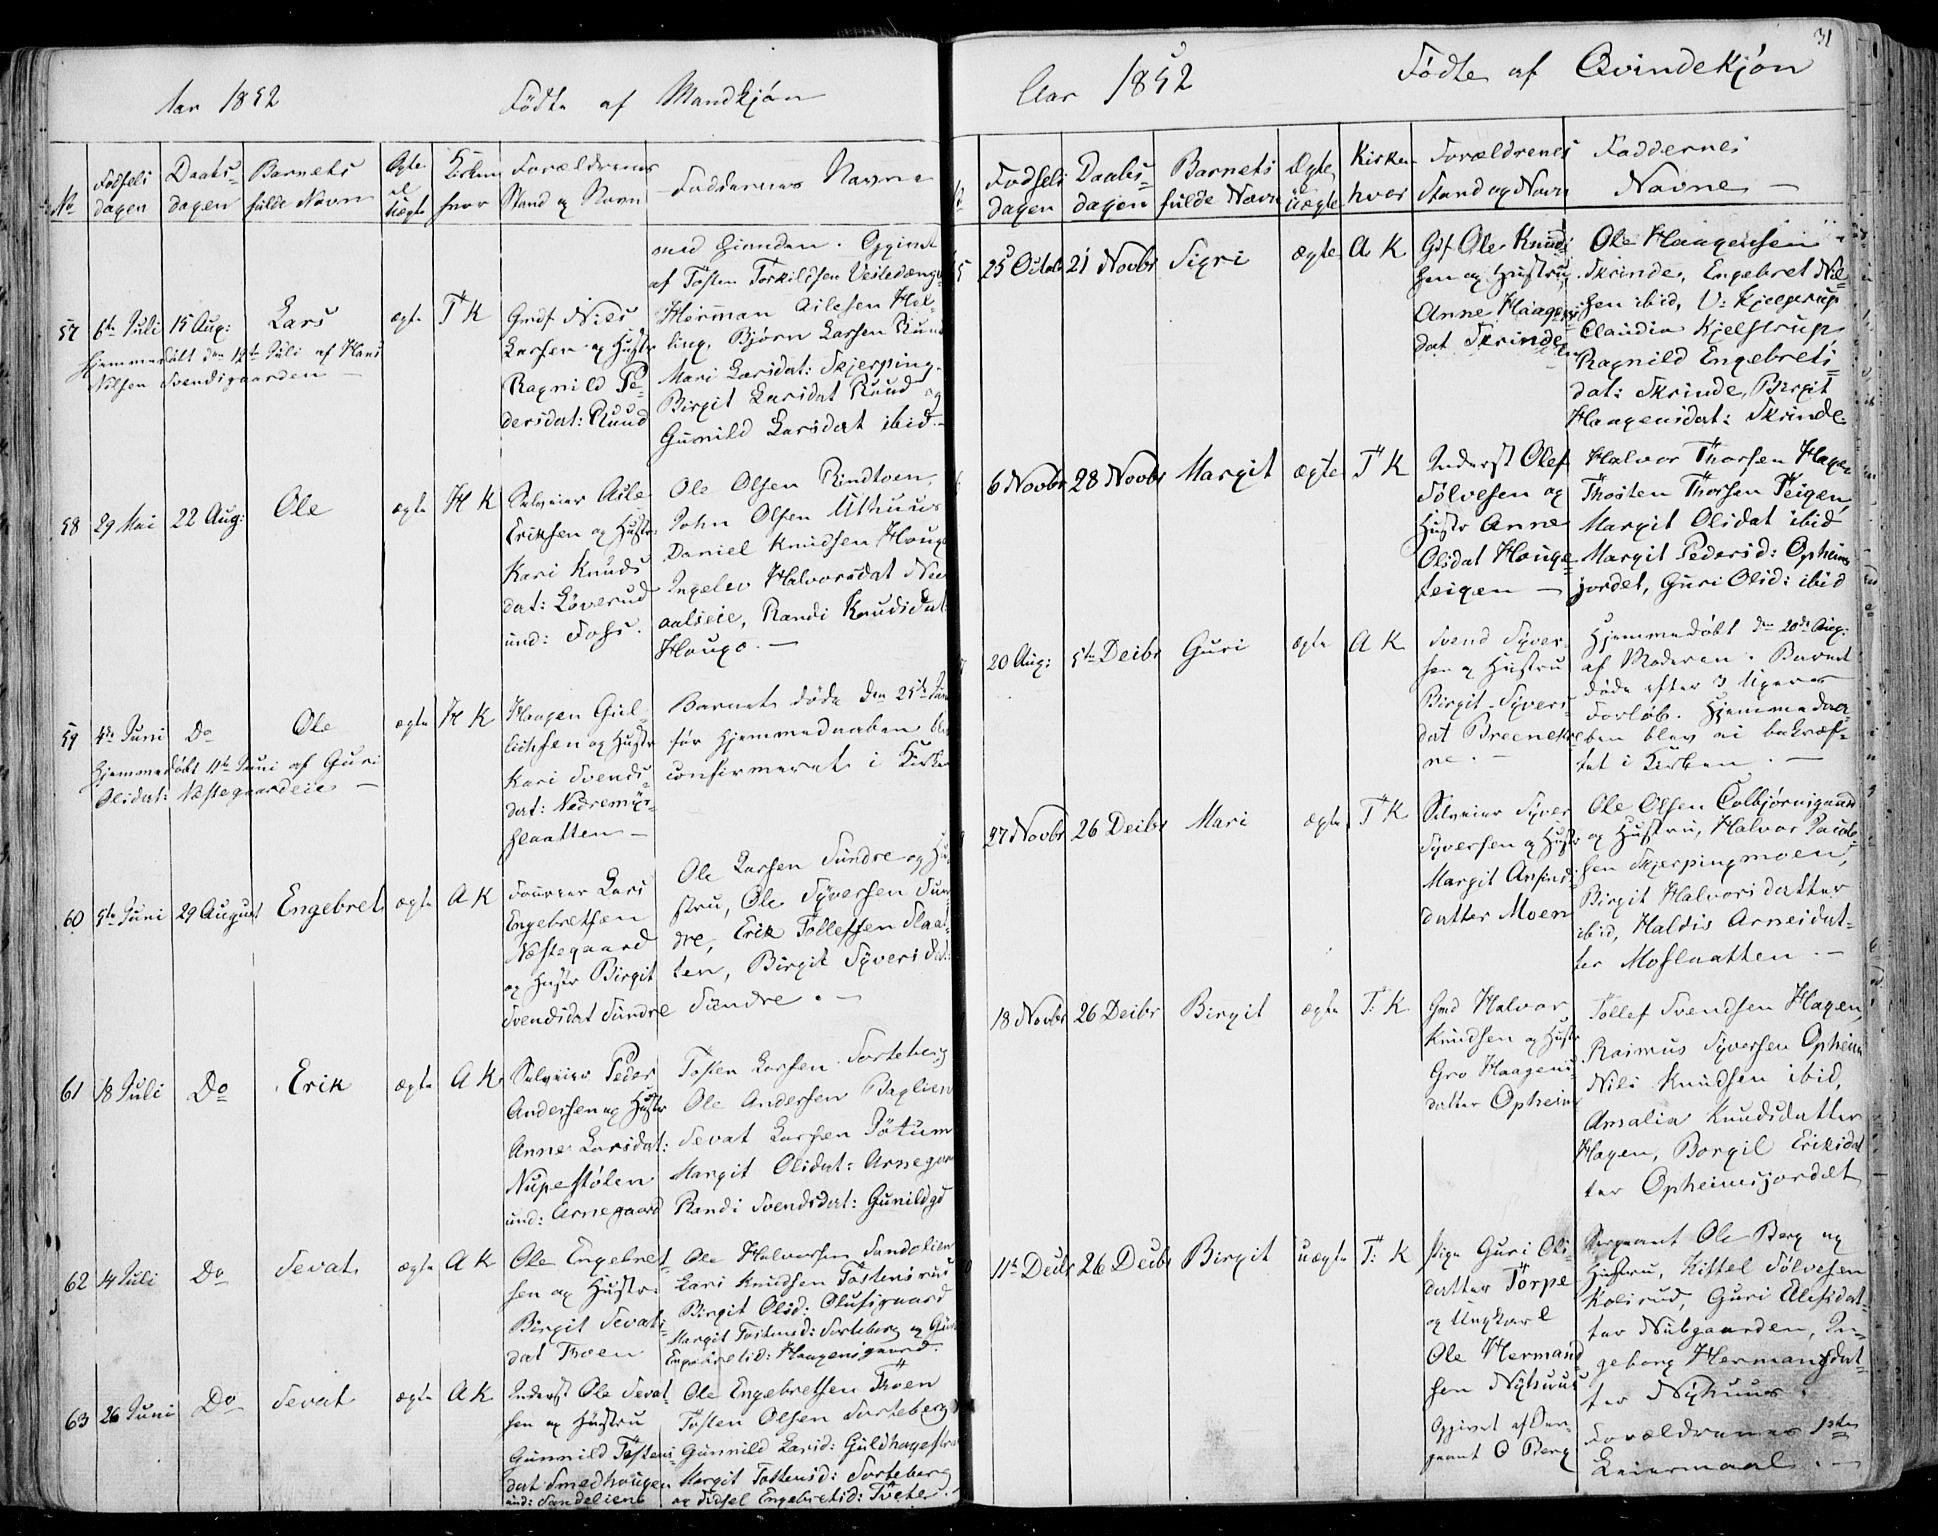 Aar 1852 Fødte af Mandkjøn
No Fødsels dagen Daabs- dagen Barnets fulde Navn Ægte el Uægte Kirken hvor Forældrenes Stand og Navn Faddernes Navne
af Tosten Torkildsen
57 6te Juli 15 Aug: Lars ægte T K
Hjemmedøbt den 12te Juli af Hans
Nilsen Svendsgaarden
Gmd Niels
Larsen og Hustr
Ragnild Pe-
dersdat: Ruud
Herman
ling, Bjørn Larsen Ruud
Mari Larsdat: Skjerping
Birgit Larsdat Ruud og
Gunild Larsdat ibid
58 29 Mai 22 Aug: Ole ægte H K
Selveier Asle
Eriksen og Hustr:
Kari Knuds
dat: Løverud
und: Foss.
Ole Olsen Rindtoen,
John Olsen Uthuus
Daniel Knudsen Houg
Ingelev Halvorsdat
aalseie, Randi Knudsdat
Hougo.
59 4de Juni Do Ole ægte H K
Hjemmedøbt 11te Juni af Guri
Olsdat: Næstegaardeie
Haagen Gul-
liksen og Hustr
Kari Svends-
dat: Nedremyr-
slaatten
Barnet døde den 25te Juni
før Hjemmedaaben blev
confirmeret i Kirken
60 5te Juni 29 August Engebret ægte A K
Foureer Lars
Engebretsen
Næstegaard
og Hustr Birgit
Svendsdat Sundre
Ole Larsen Sundre og Hu-
stru, Ole Syversen Sun-
dre, Erik Tollefsen Slaat-
ten, Birgit Syversdat:
Sundre.
61 18 Juli Do Erik ægte A K
Selveier Peder
Andersen og Hustr
Anne Larsdat:
Nupestølen
und: Arnegaard
Tosten Larsen Sorteberg
Ole Andersen Baglien
Sevat Larsen Jøtum
Margit Olsdat: Arnegard
Randi Svendsdat: Gunildgd
62 14 Juli Do Sevat ægte A K
Ole Engebret-
sen og Hustr:
Birgit Sevats-
dat Moen
Ole Halvorsen Sandolien
Lars Knudsen Tostensrud
Birgit Olsd: Olufsgaard
Margit Tostensd: Sorteberg og Guri
Engebretsd: Haagensgaard.
63 26 Juni Do Sevat ægte A K
Inderst Ole Sevat-
sen og Hustru
Gunnild Tostens-
dat Smedhougen
und: Sandeliene
Ole Engebretsen Moen
Tosten Olsen Sorteberg
Gunnild Larsd: Guldhagen
Margit Tostensd: Sorteberg
og Sidsel Engebretsd: Tveto
31
Aar 1852 Fødte af Qvindekjøn
Fødsels dagen Daabs- dagen Barnets fulde Navn Ægte el Uægte Kirken hvor Forældrenes Stand og Navn Faddernes Navne
25 Octob 21 Novbr Sigri ægte A K
Gdf Ole Knud-
sen og Hustru
Anne Haagens
dat Skrinde
Ole Haagensen
Skrinde, Engebret Nil-
sen ibid, V: Kjelstrup
Claudia Kjelstrup,
Ragnild Engebrets-
dat: Skrinde, Birgit
Haagensdat: Skrinde
6 Novbr 28 Novbr Margit ægte T K
Inderst Olef
Sølvesen og
Hustr Anne
Olsdat Houge-
teigen
Halvor Thorsen Hagen
Thosten Thorsen Teigen,
Margit Olsdat ibid
Margit Pedersd: Opheims-
jordet, Guri Olsd: ibid
20 Aug: 5te Decbr Guri ægte A K
Svend Syver-
sen og Hustru
Birgit Syvers-
dat Breenekre
ne.
Hjemmedøbt den 20de Aug:
af Moderen. Barnet
døde efter 3 Ugers
Forløb. Hjemmedaa-
ben blev ei bekræf-
tet i Kirken.
27 Novbr 26 Decbr Mari ægte T K
Selveier Syver
Syversen og Hustr
Margit Asfinds-
datter Moen
Ole Olsen Tolbjørnsgaard
og Hustru, Halvor Jacob-
sen Skjerpingmoen,
Birgit Halvorsdatter
ibid, Haldis Arnesdat-
ter Moslaatten.
18 Novbr 26 Decbr Birgit ægte T: K
Gmd Halvor
Knudsen og Hustr
Gro Haagens-
datter Opheim
Tollef Svendsen Hagen,
Rasmus Syversen Opheim
Nils Knudsen ibid,
Amalia Knudsdatter
Hagen, Borgil Eriksdat
ter Opheimsjordet
11te Decbr 26 Decbr Birgit uægte T: K
Pige Guri Ols-
datter Torpe
og Ungkarl
Ole Hermand
sen Nyhuus
Opgivet af Ser-
geant O Berg
Sergeant Ole Berg og
Hustru, Kittel Sølvesen
Kolsrud, Guri Olesdat-
ter Nubgaarden, In-
geborg Hermansdat-
ter Nyhuus.
Forældrenes 1ste
Leiermaal.